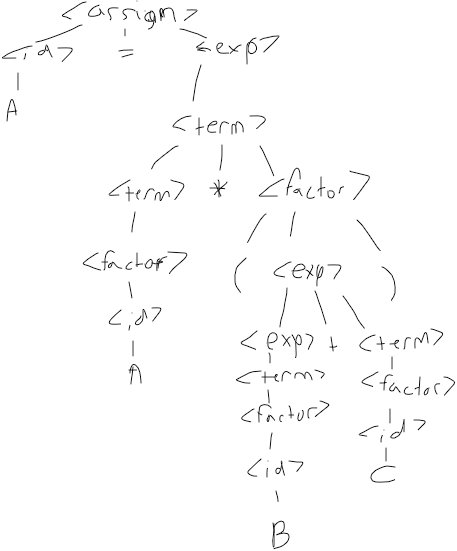 <assign>
<id> = <exp>
A
<term>
<term> * <factor>
<factor> ( <exp> )
<id>
A
<exp> + <term>
<term> <factor>
<factor> <id>
<id> C
B